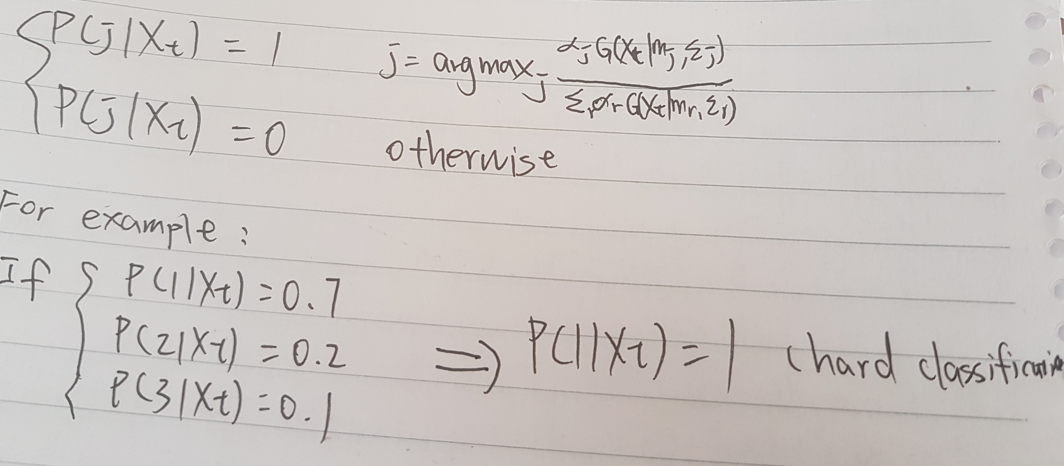 P(j|Xt) = 1 j = argmaxj αjG(Xt|mj,Σj) / ΣrαrG(Xt|mr,Σr)
P(j|Xt) = 0 otherwise
For example :
If P(1|Xt) = 0.7
P(2|Xt) = 0.2 ⇒ P(1|Xt) = 1 (hard classification
P(3|Xt) = 0.1